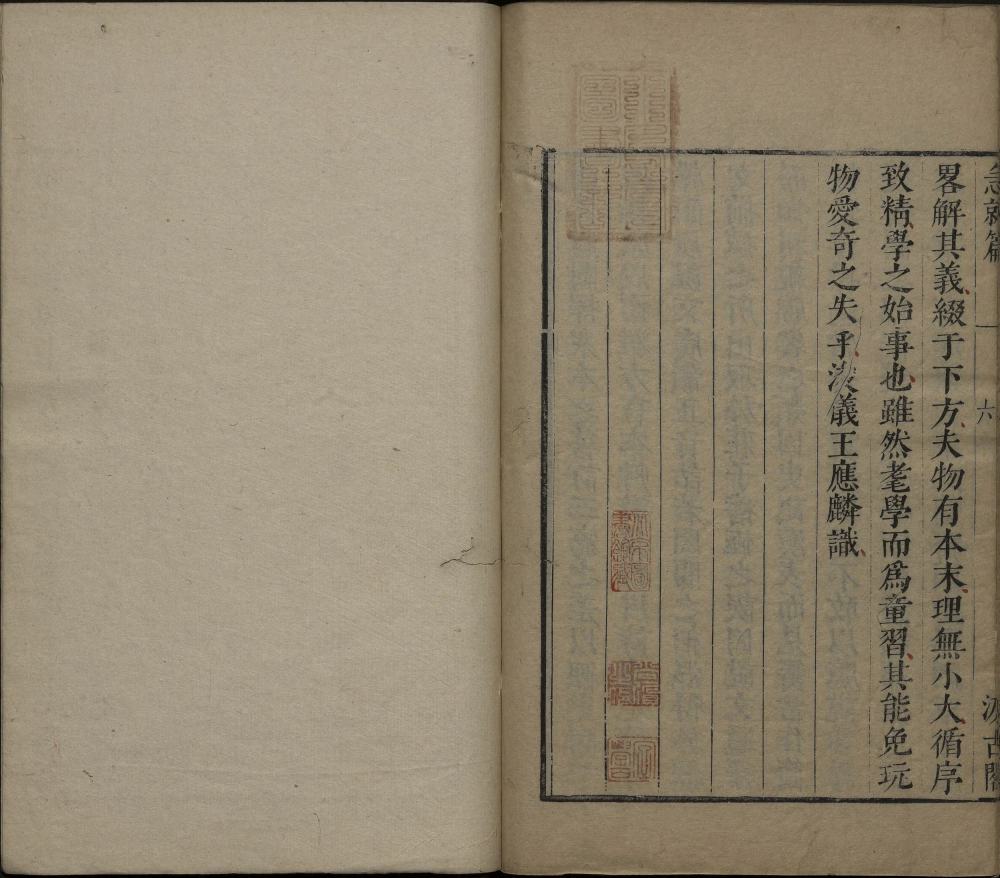 急就篇 一 六 汲古閣
畧解其義綴于下方夫物有本末理無小大循序
致精學之始事也雖然耄學而爲童習其能免玩
物愛奇之失乎浚儀王應麟識